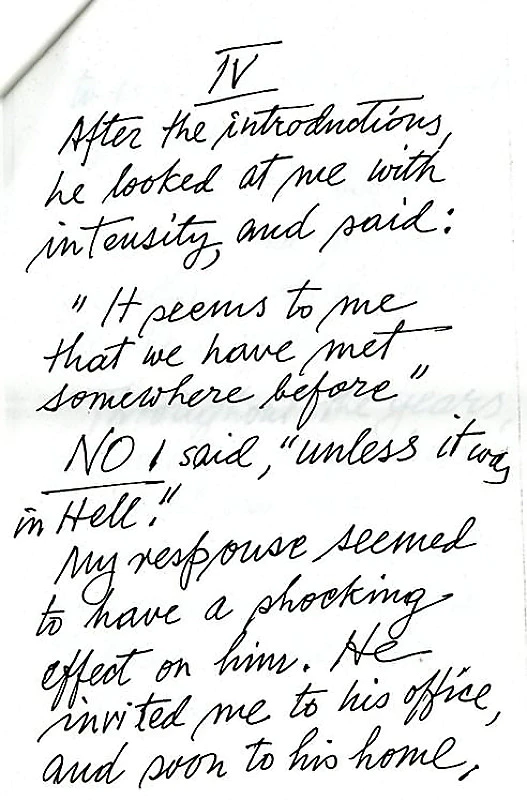 IV
After the introductions,
he looked at me with
intensity, and said:
"It seems to me
that we have met
somewhere before"
NO I said, "unless it was
in Hell."
My response seemed
to have a shocking
effect on him. He
invited me to his office,
and soon to his home,